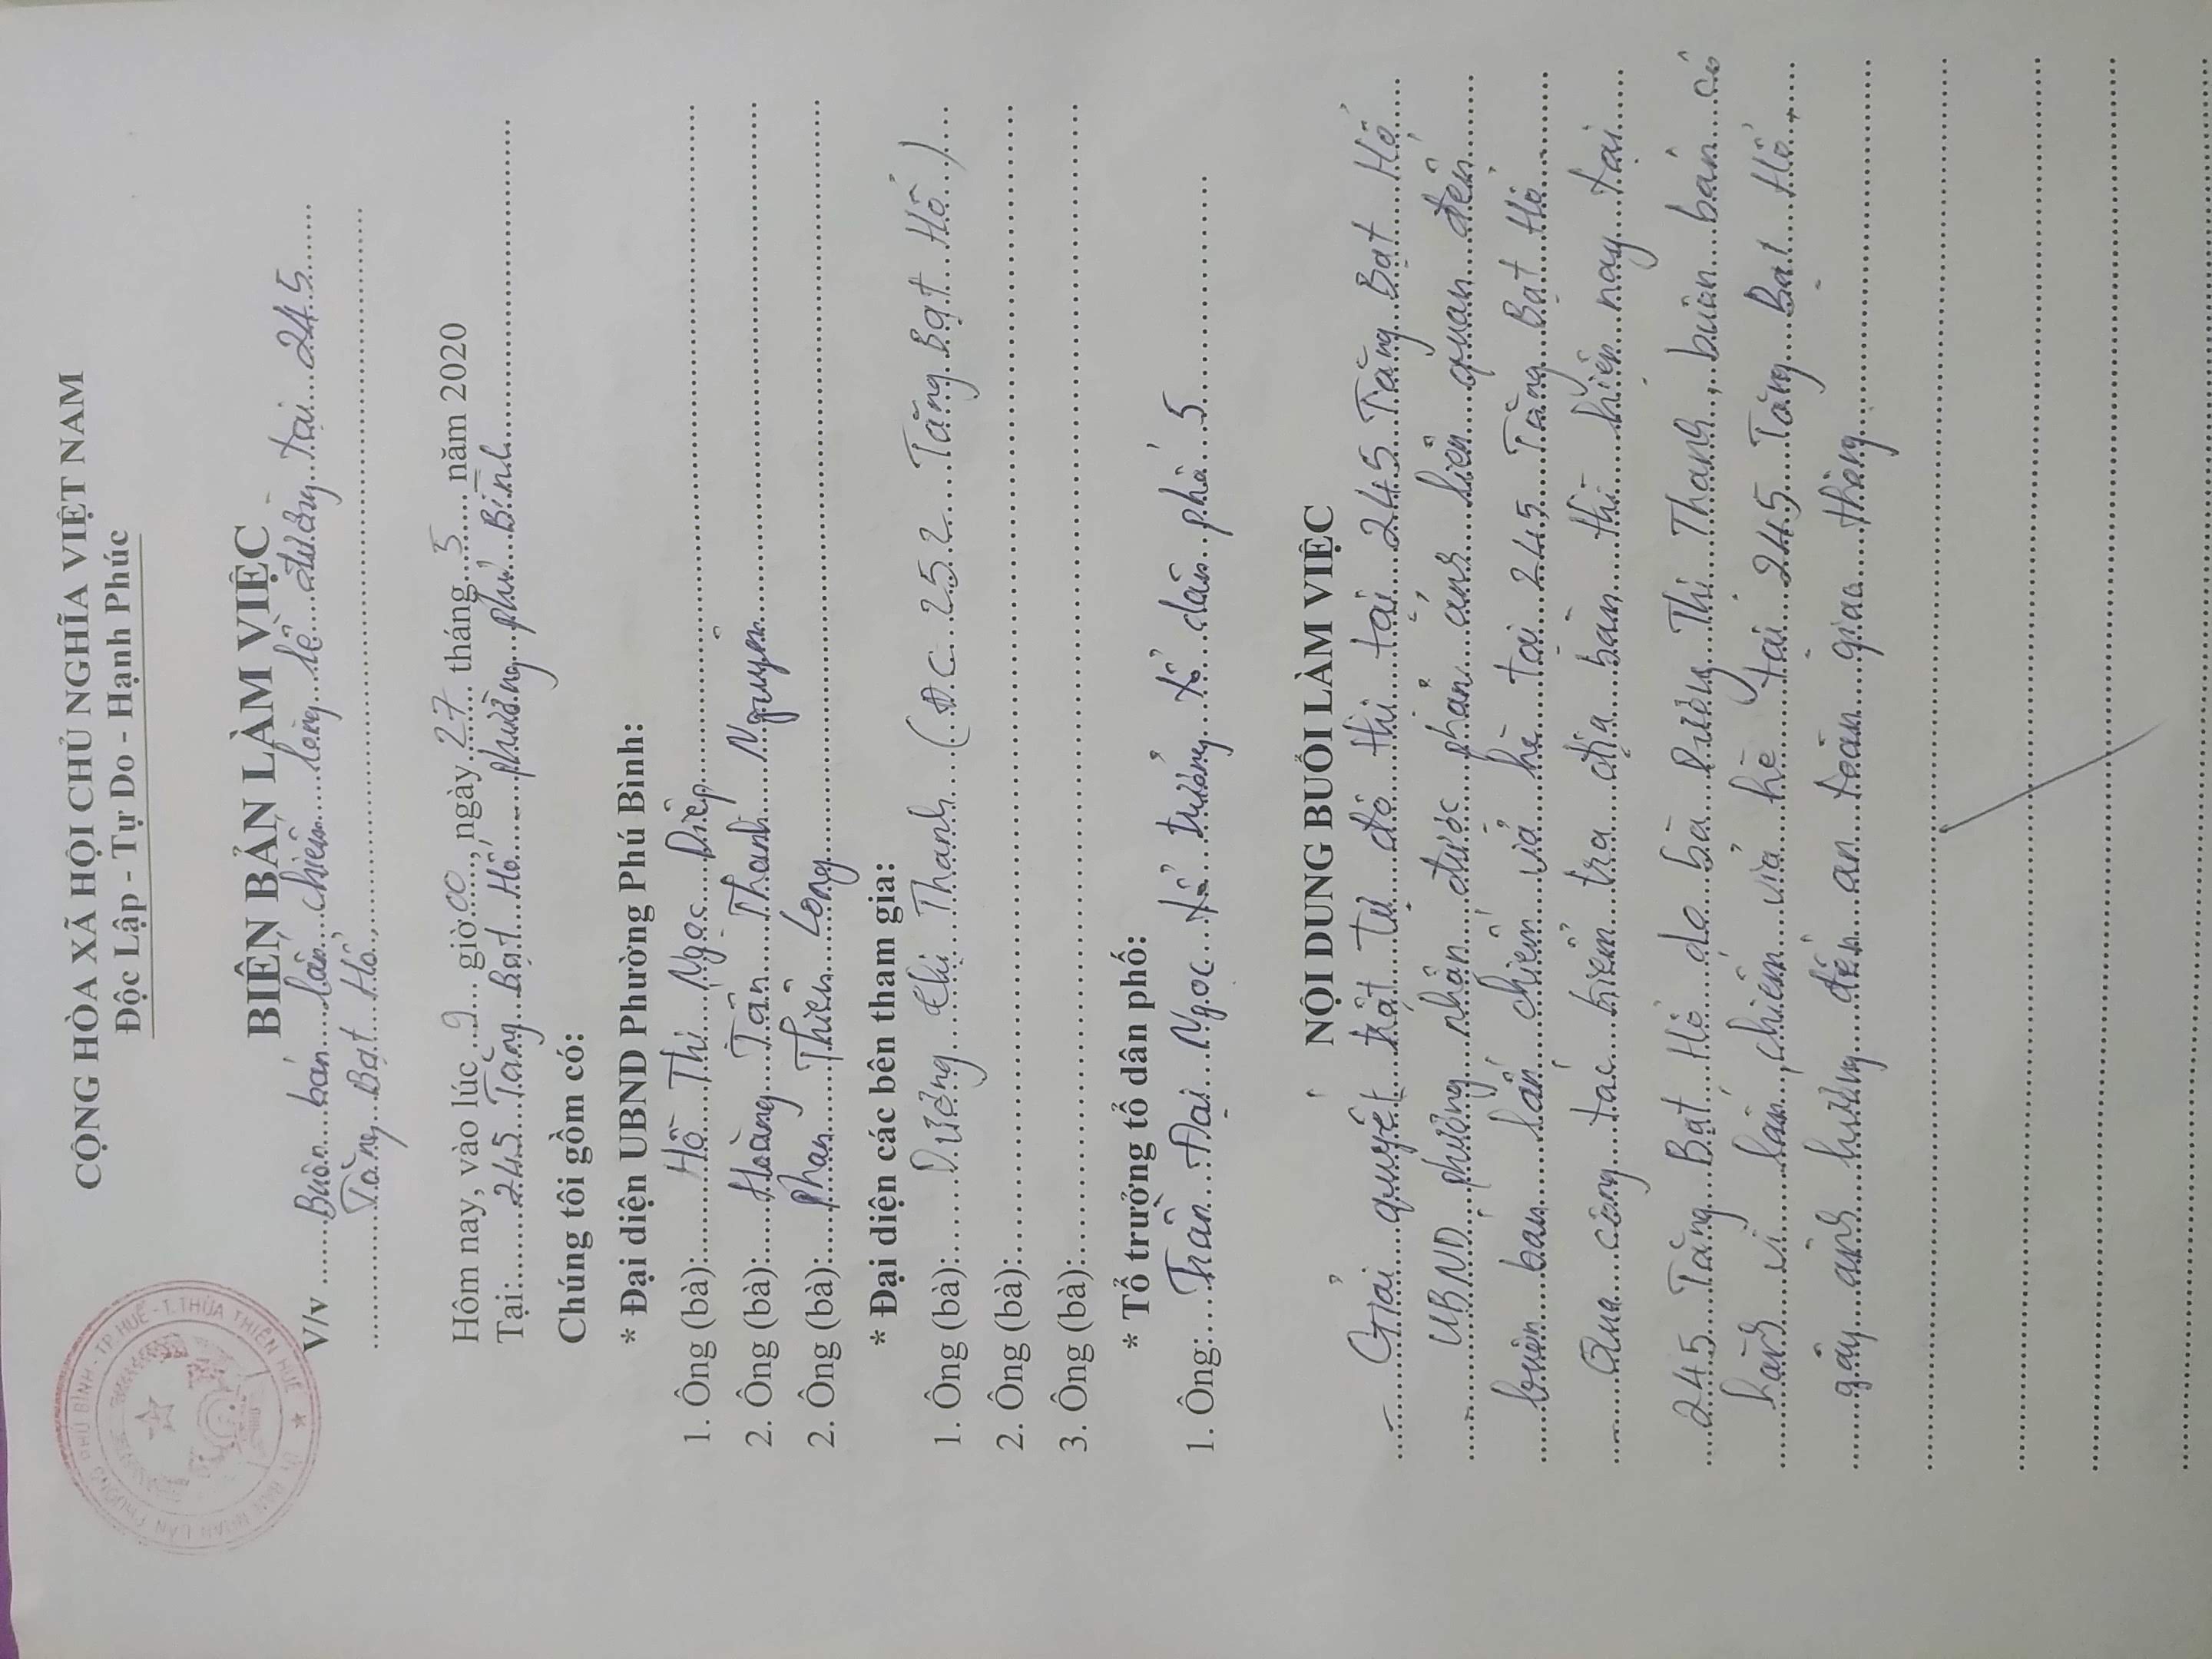 CỘNG HÒA XÃ HỘI CHỦ NGHĨA VIỆT NAM
Độc Lập - Tự Do - Hạnh Phúc
BIÊN BẢN LÀM VIỆC
V/v Buôn bán lấn chiếm lòng lề đường tại 245
Tăng Bạt Hổ
Hôm nay, vào lúc 9 giờ 00, ngày 27 tháng 5 năm 2020
Tại: 245 Tăng Bạt Hổ phường Phú Bình
Chúng tôi gồm có:
* Đại diện UBND Phường Phú Bình:
1. Ông (bà): Hồ Thị Ngọc Diệp
2. Ông (bà): Hoàng Tấn Thanh Nguyên
2. Ông (bà): Phan Thiên Long
* Đại diện các bên tham gia:
1. Ông (bà): Dương Thị Thanh (Đ.C 252 Tăng Bạt Hổ)
2. Ông (bà):
3. Ông (bà):
* Tổ trưởng tổ dân phố:
1. Ông: Trần Đại Ngọc tổ trưởng tổ dân phố 5
NỘI DUNG BUỔI LÀM VIỆC
- Giải quyết trật tự đô thị tại 245 Tăng Bạt Hổ
UBND phường nhận được phản ánh liên quan đến
buôn bán lấn chiếm vỉa hè tại 245 Tăng Bạt Hổ
Qua công tác kiểm tra địa bàn thì hiện nay tại
245 Tăng Bạt Hổ do bà Dương Thị Thanh, buôn bán có
hành vi lấn, chiếm vỉa hè tại 245 Tăng Bạt Hổ,
gây ảnh hưởng đến an toàn giao thông
ỦY BAN NHÂN DÂN PHƯỜNG PHÚ BÌNH - TP. HUẾ - T. THỪA THIÊN HUẾ